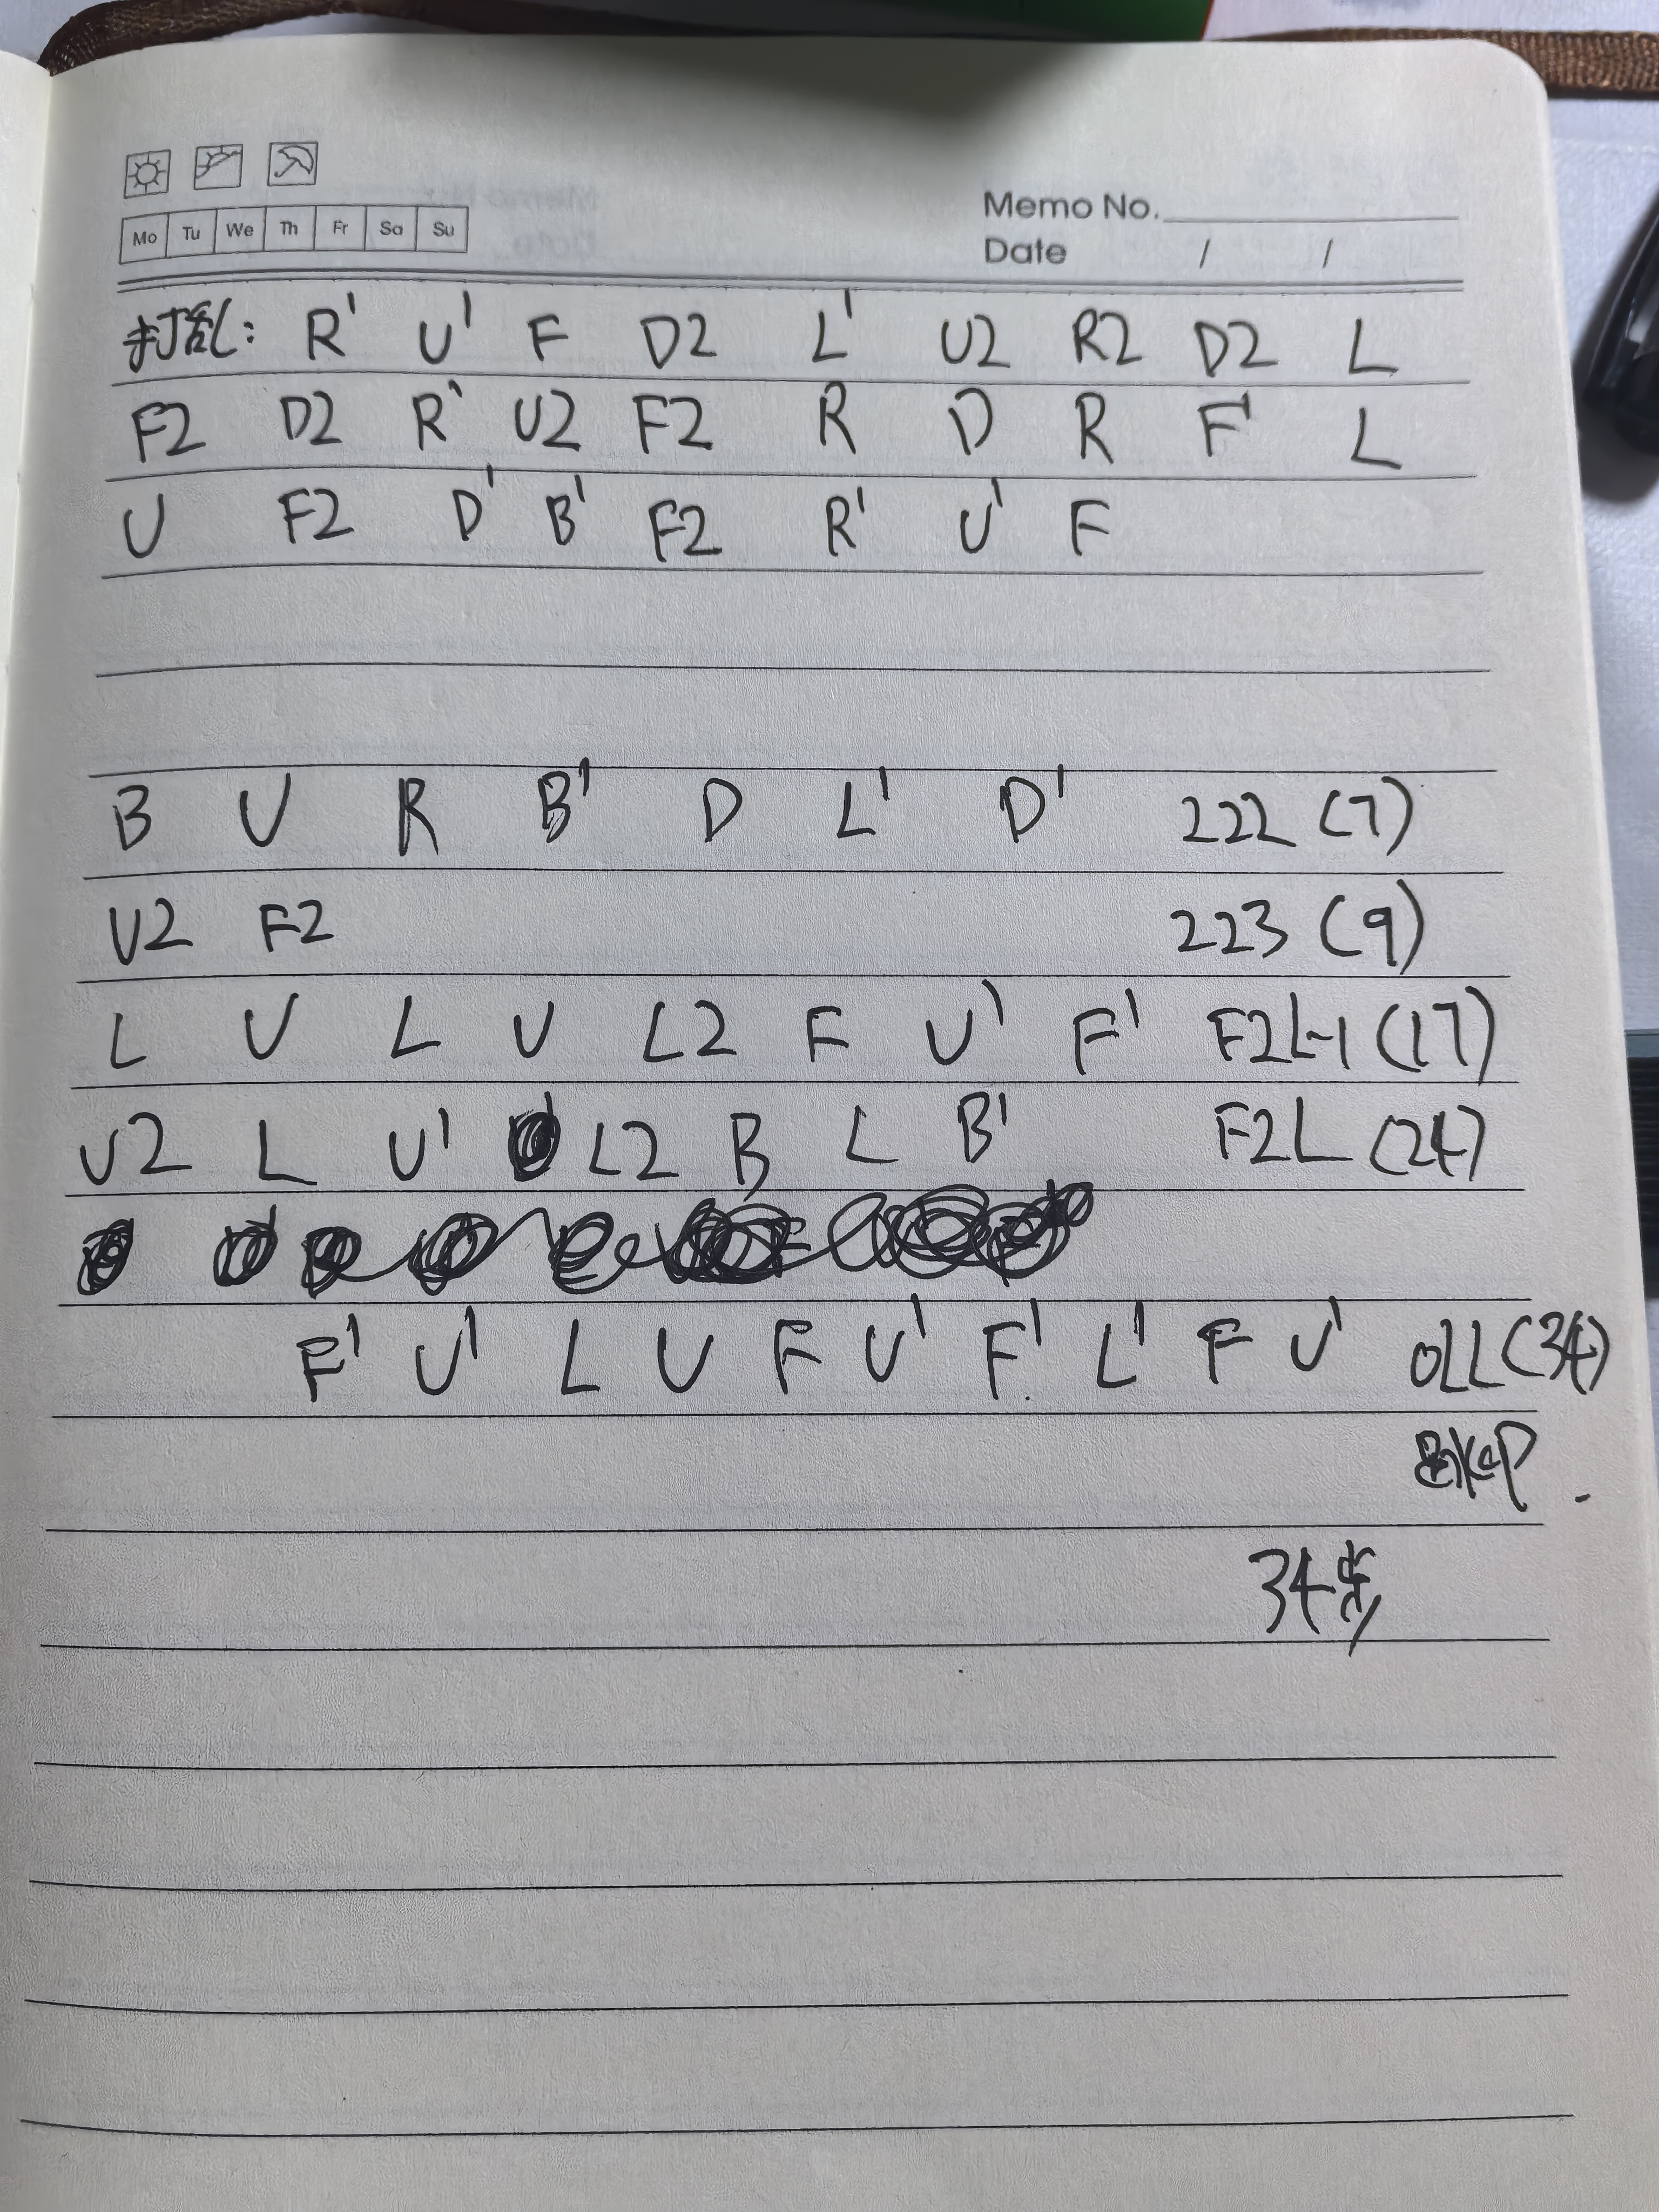 Memo No.
Mo Tu We Th Fr Sa Su
Date / /
打乱: R' U' F D2 L' U2 R2 D2 L
F2 D2 R' U2 F2 R D R F' L
U F2 D' B' F2 R' U' F
B U R B' D L' D' 222 (7)
U2 F2 223 (9)
L U L U L2 F U' F' F2L-1 (17)
U2 L U' L2 B L B' F2L (24)
F' U' L U F U' F' L' F U' OLL (34)
34步